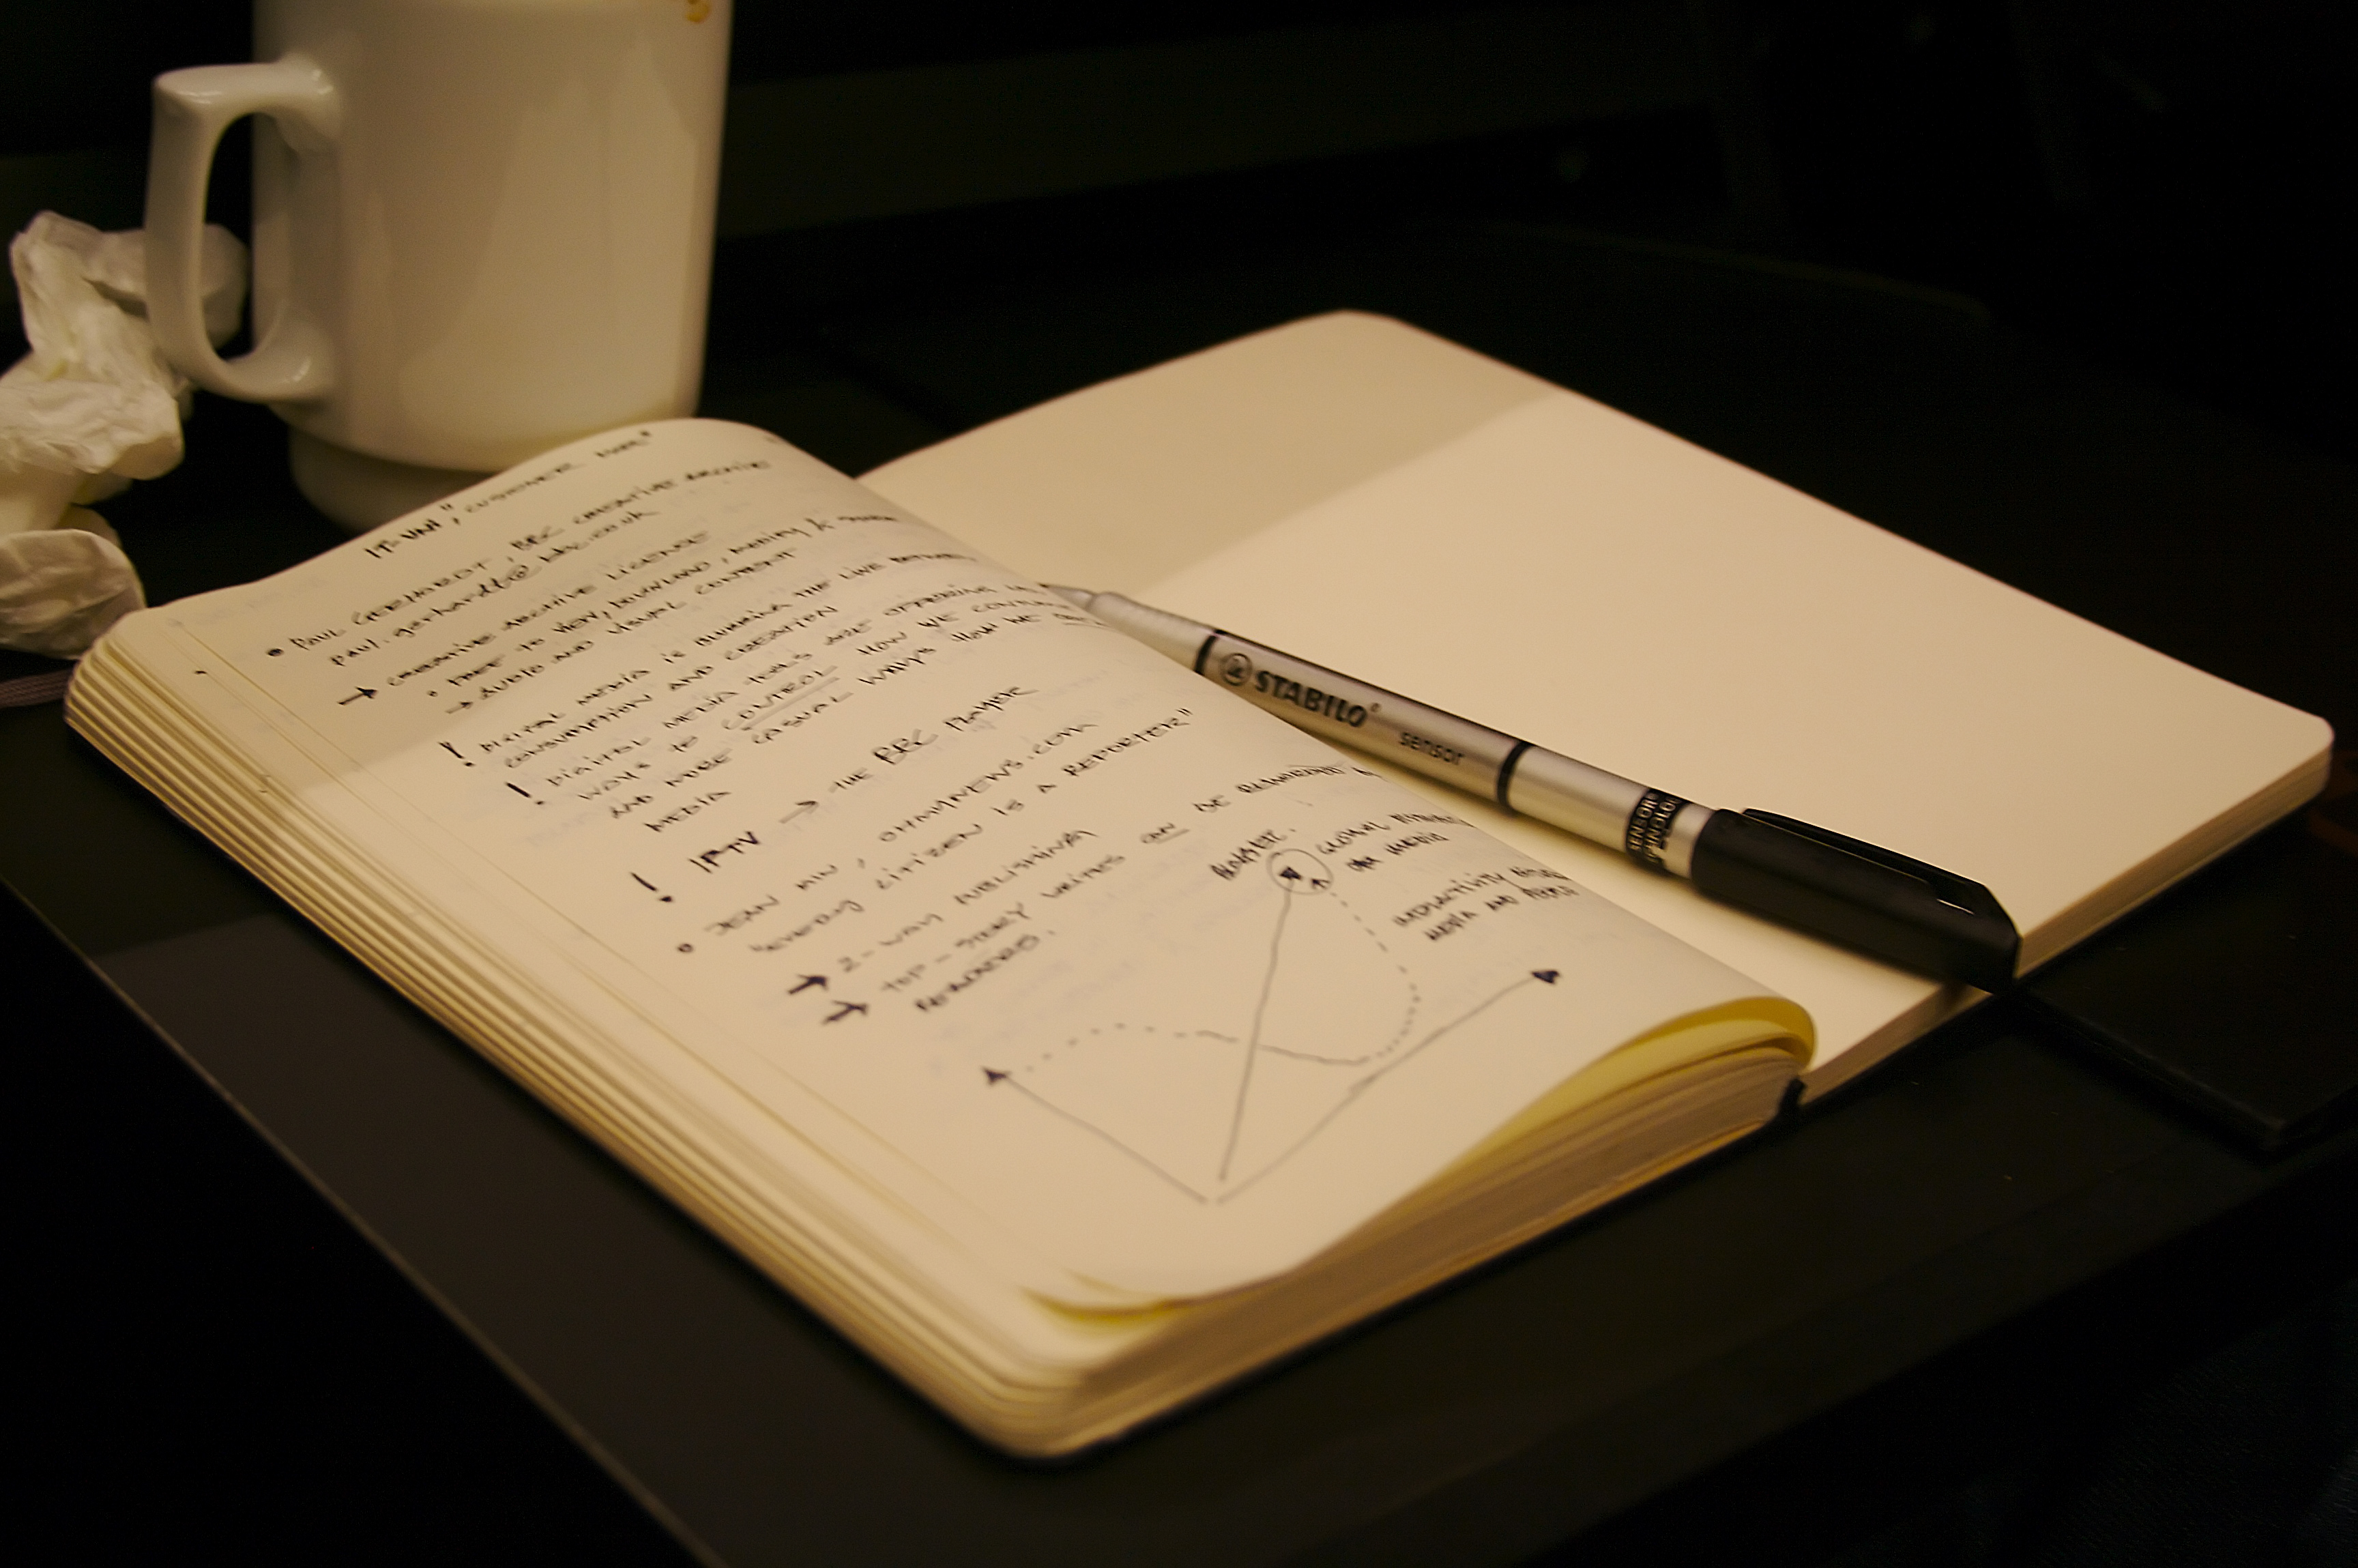 IT-UNI",
• PAUL GERHARDT, BBC CREATIVE ARCHIVE
paul.gerhardt@bbc.co.uk
→ CREATIVE ARCHIVE LICENCE
• FREE TO VIEW, DOWNLOAD,
→ AUDIO AND VISUAL CONTENT
! DIGITAL MEDIA IS BLURRING THE LINE BETWEEN
CONSUMPTION AND CREATION
! DIGITAL MEDIA TOOLS ARE OFFERING
WAYS TO CONTROL HOW WE
AND MORE CASUAL WAYS HOW WE
MEDIA
! IPTV → THE BBC PLAYER
• JEAN MIN, OHMYNEWS.COM
"EVERY CITIZEN IS A REPORTER"
→ 2-WAY PUBLISHING
→ TOP-STORY WRITERS CAN BE REWARDED
READERS.
GLOBAL
OR MEDIA
MEDIA AND PEOPLE
STABILO®
sensor